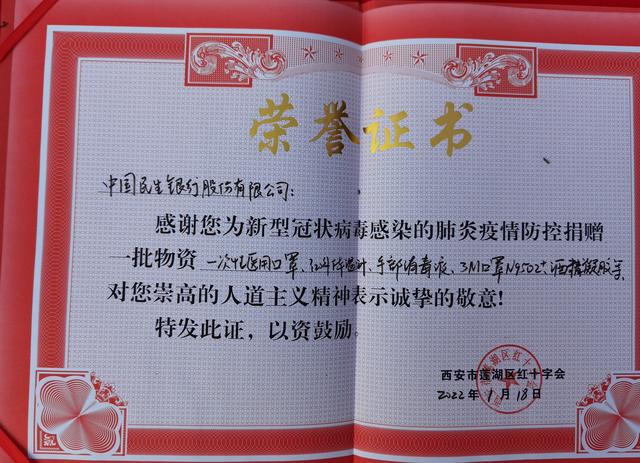 荣誉证书
中国民生银行股份有限公司:
感谢您为新型冠状病毒感染的肺炎疫情防控捐赠
一批物资 一次性医用口罩、红外体温计、手部消毒液、3M口罩N9502+、
对您崇高的人道主义精神表示诚挚的敬意!
特发此证，以资鼓励。
西安市莲湖区红十字会
2022年1月18日